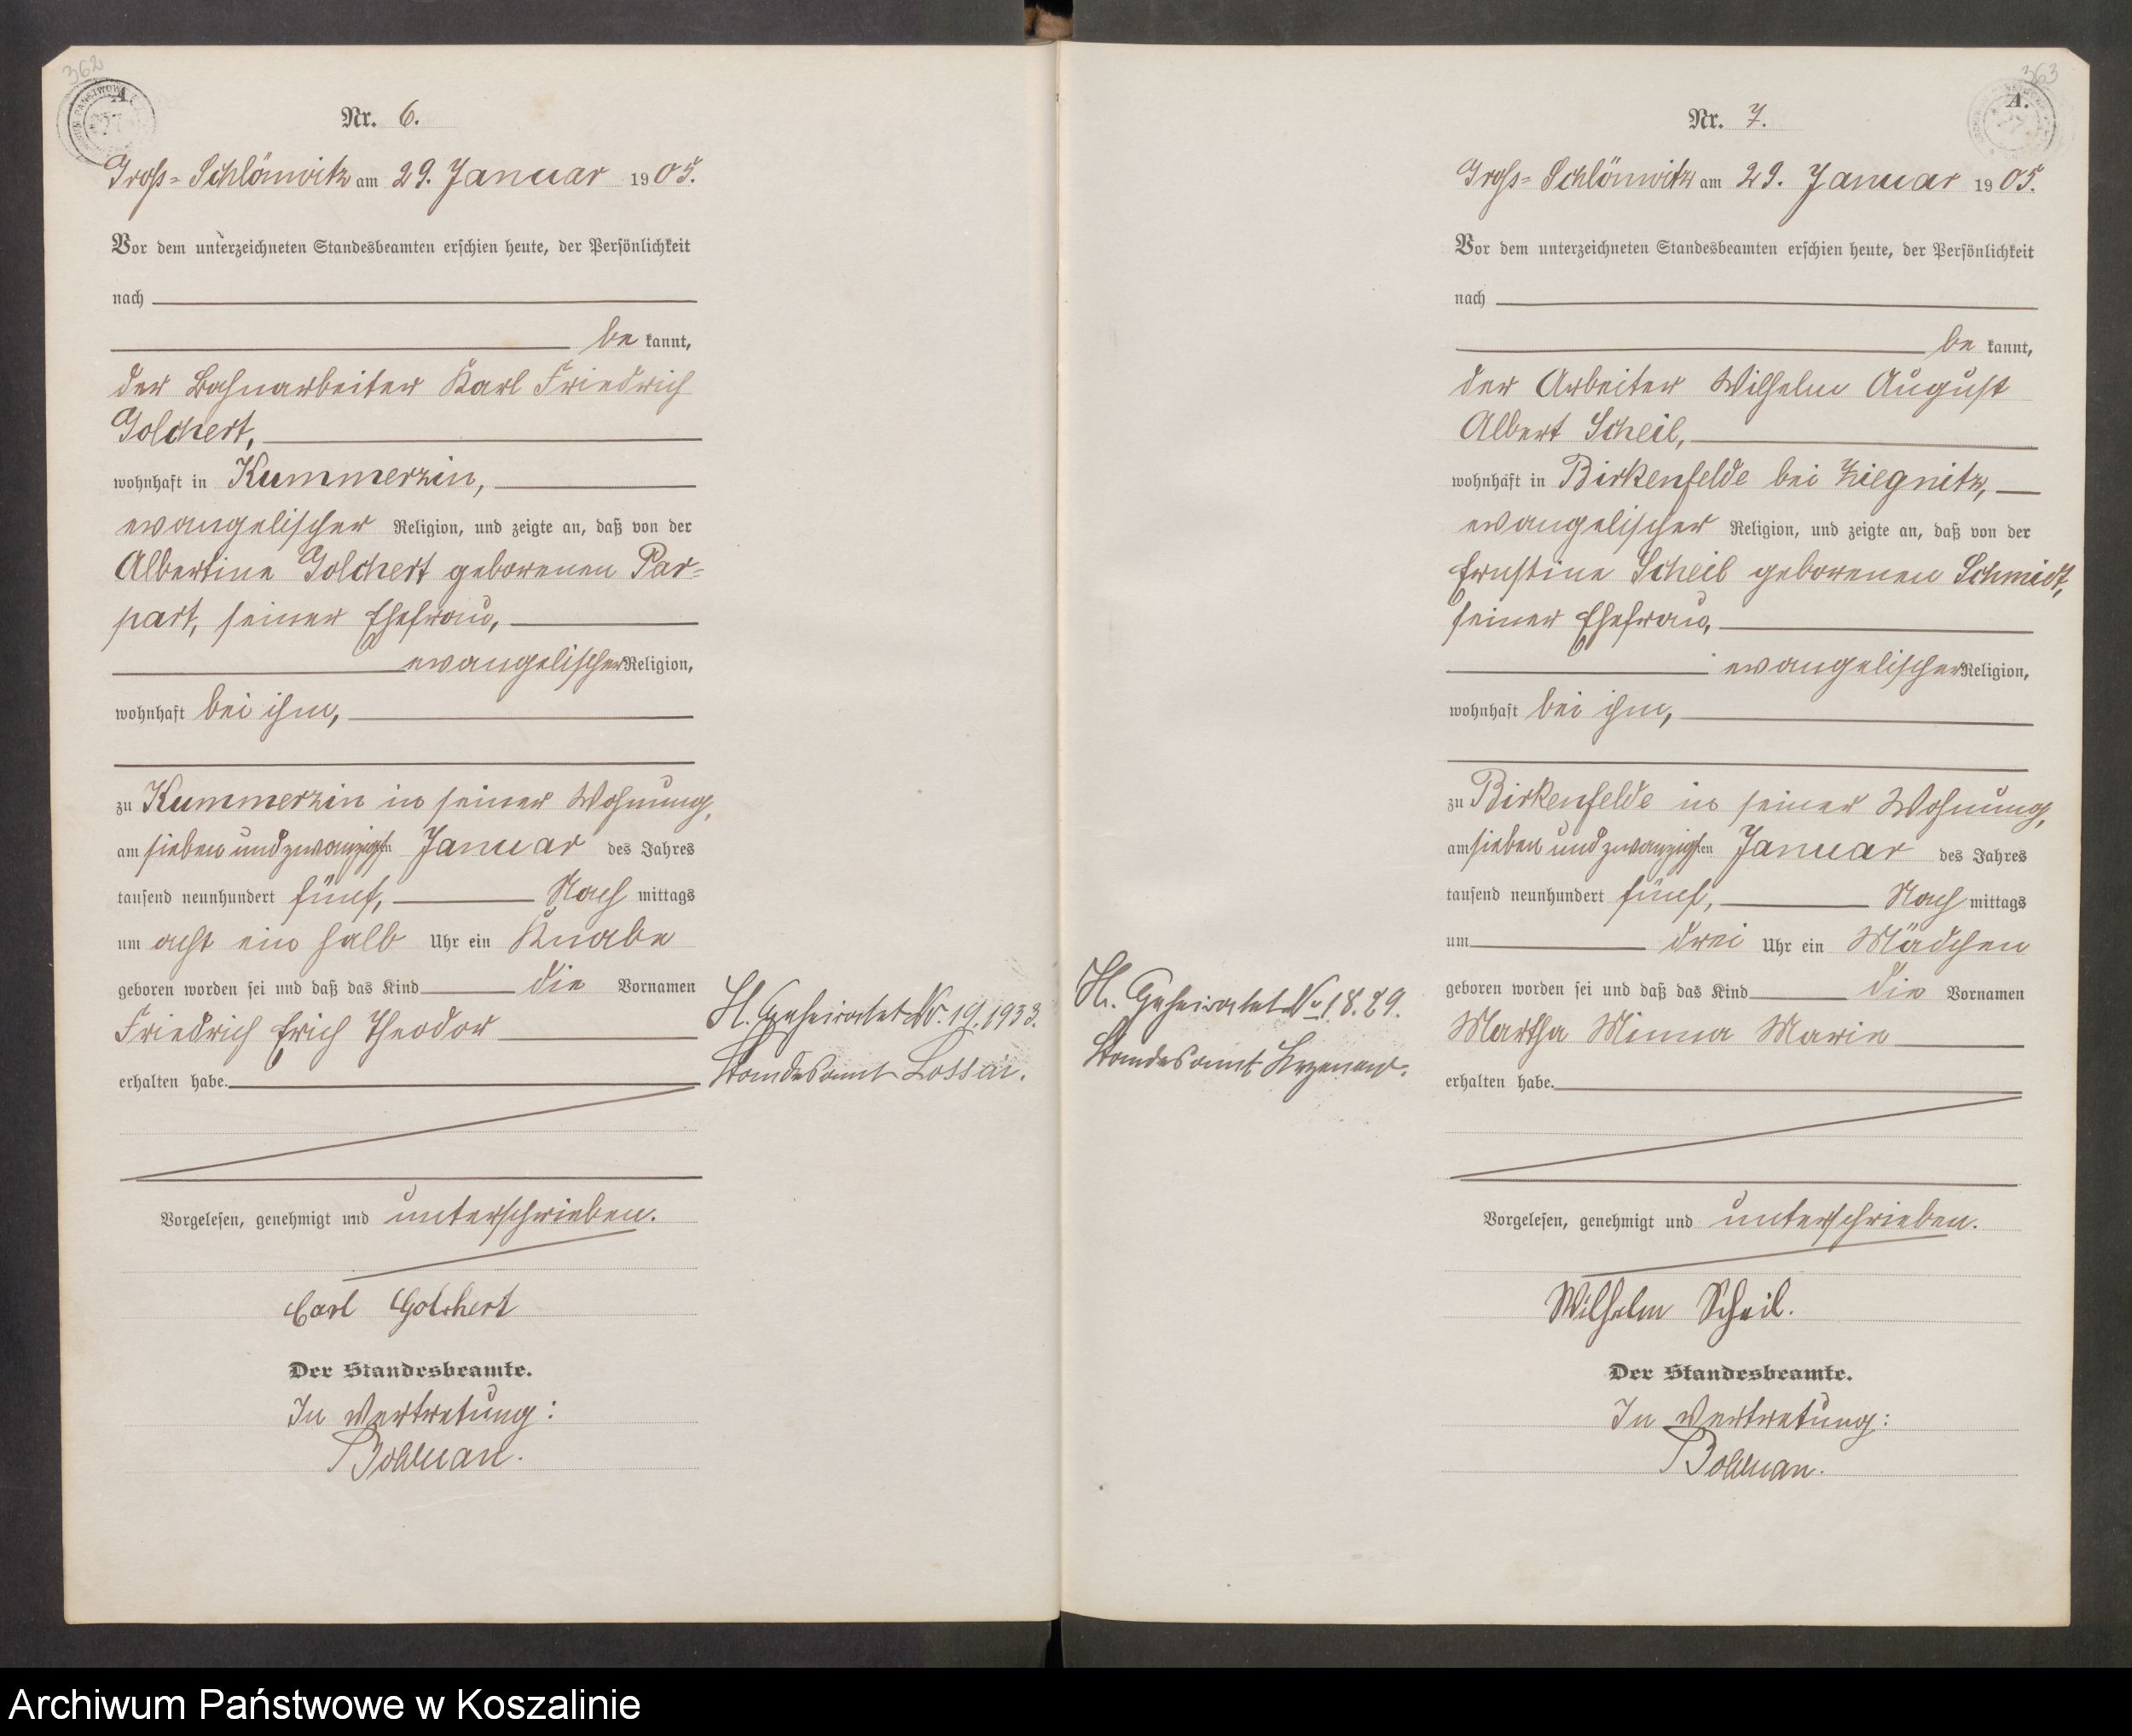 362
A.
Nr. 6.
Groß-Schlönwitz am 29. Januar 1905.
Vor dem unterzeichneten Standesbeamten erschien heute, der Persönlichkeit
nach
be kannt,
der Bahnarbeiter Karl Friedrich
Golchert,
wohnhaft in Kummerzin,
evangelischer Religion, und zeigte an, daß von der
Albertine Golchert geborenen Par-
part, seiner Ehefrau,
evangelischer Religion,
wohnhaft bei ihm,
zu Kummerzin in seiner Wohnung,
am sieben und zwanzigsten Januar des Jahres
tausend neunhundert fünf, Nach mittags
um acht ein halb Uhr ein Knabe
geboren worden sei und daß das Kind die Vornamen
Friedrich Erich Theodor
erhalten habe.
H. Geheiratet Nr. 19.1933.
Standesamt Lossin.
Vorgelesen, genehmigt und unterschrieben.
Carl Golchert
Der Standesbeamte.
In Vertretung:
363
A.
Nr. 7.
Groß-Schlönwitz am 29. Januar 1905.
Vor dem unterzeichneten Standesbeamten erschien heute, der Persönlichkeit
nach
be kannt,
der Arbeiter Wilhelm August
Albert Scheil,
wohnhaft in Birkenfelde bei
evangelischer Religion, und zeigte an, daß von der
Ernstine Scheil geborenen Schmidt,
seiner Ehefrau,
evangelischer Religion,
wohnhaft bei ihm,
zu Birkenfelde in seiner Wohnung,
am sieben und zwanzigsten Januar des Jahres
tausend neunhundert fünf, Nach mittags
um drei Uhr ein Mädchen
geboren worden sei und daß das Kind die Vornamen
Martha Minna Marie
erhalten habe.
H. Geheiratet No 18.29.
Standesamt
Vorgelesen, genehmigt und unterschrieben.
Wilhelm Scheil.
Der Standesbeamte.
In Vertretung:
Archiwum Państwowe w Koszalinie